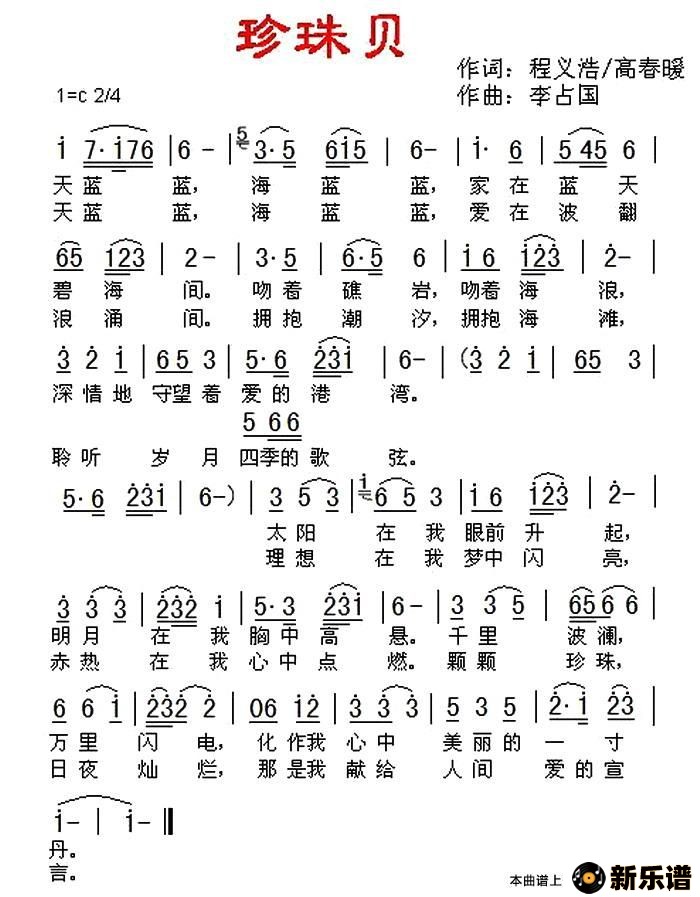 珍珠贝
作词：程义浩/高春暖
1=c 2/4
作曲：李占国
i 7·i76 | 6 - | 5 3·5 6i5 | 6- | i· 6 | 5 45 6 |
天蓝 蓝，海 蓝 蓝，家在蓝天
天蓝 蓝，海 蓝 蓝，爱在波翻
65 123 | 2- | 3·5 | 6·5 6 | i 6 i23 | 2- |
碧海 间。吻着礁岩，吻着海浪，
浪涌 间。拥抱潮汐，拥抱海滩，
3 2 i | 6 5 3 | 5·6 23i | 6- | (3 2 i | 65 3 |
深情地守望着爱的港 湾。
5 66
聆听 岁月四季的歌 弦。
5·6 23i | 6-) | 3 5 3 | i 6 5 3 | i 6 i23 | 2- |
太阳 在我眼前升 起，
理想 在我梦中闪 亮，
3 3 3 | 232 i | 5·3 23i | 6- | 3 3 5 | 656 6 |
明月 在我胸中高 悬。千里 波澜，
赤热 在我心中点 燃。颗颗 珍珠，
6 6 i | 232 2 | 06 i2 | 3 3 3 | 5 3 5 | 2·i 23 |
万里闪电，化作我心中 美丽的一寸
日夜灿烂，那是我献给 人间爱的宣
i- | i- ‖
丹。
言。
本曲谱上 新乐谱